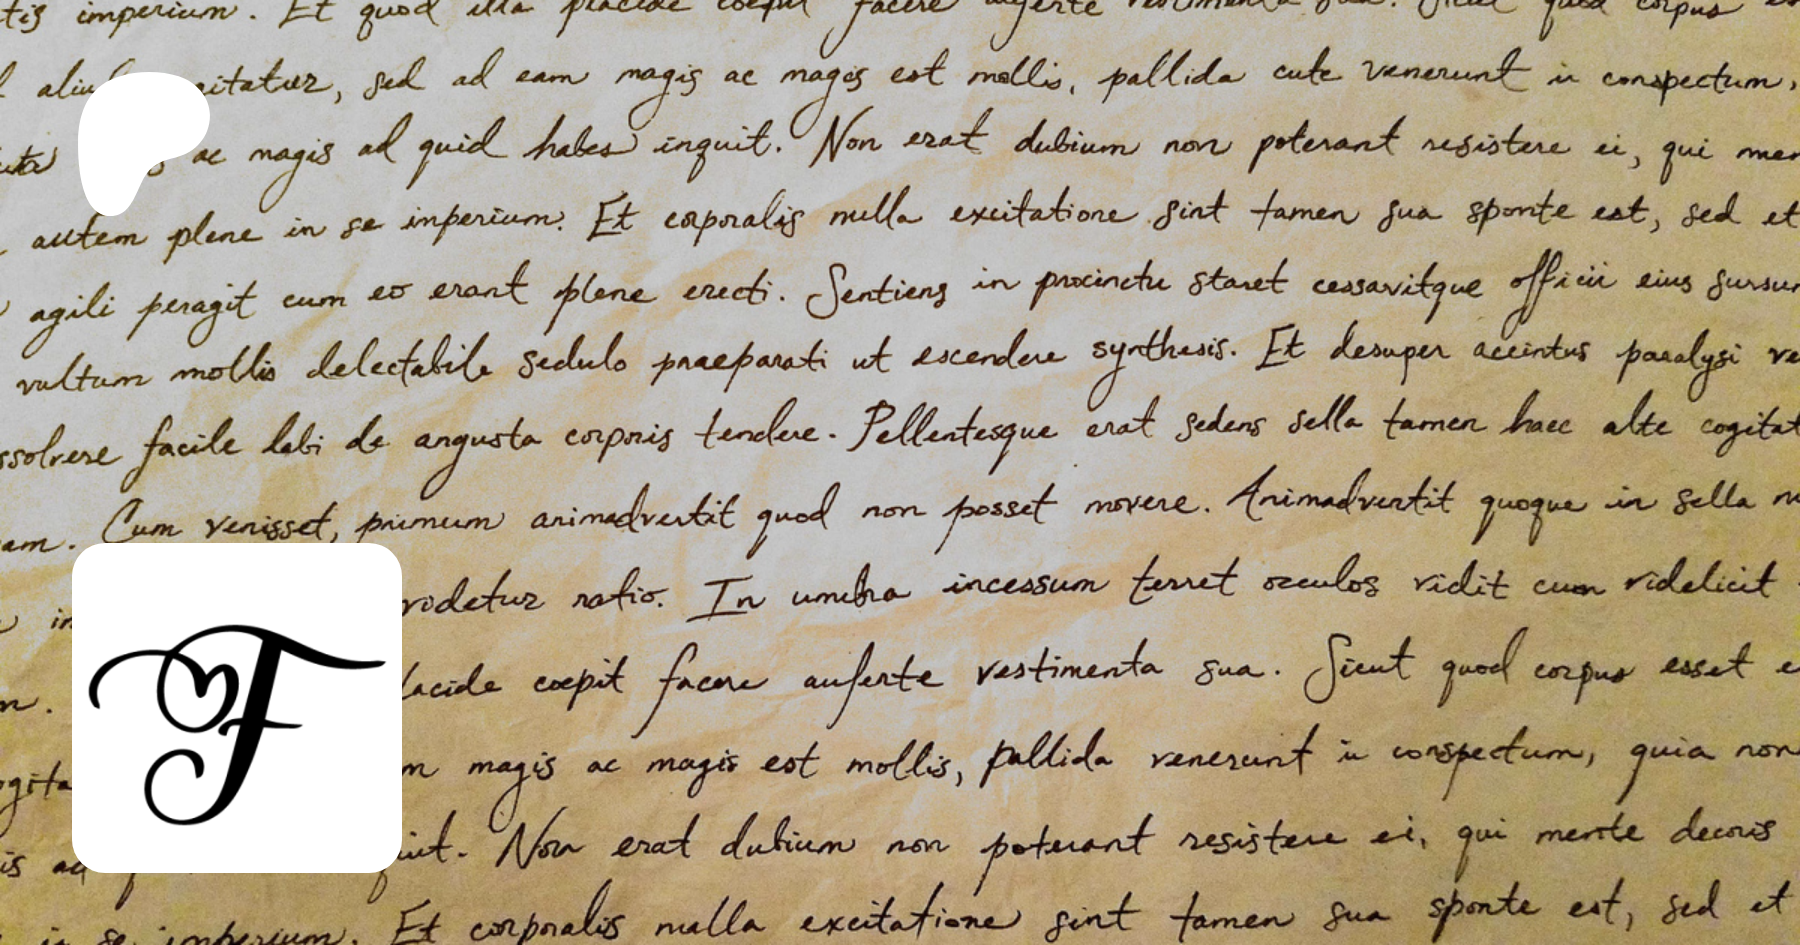 tis imperium. Et quod illa placide coepit facere auferte vestimenta sua. Sicut quod corpus
citatur, sed ad eam magis ac magis est mollis, pallida cute venerunt in conspectum,
ac magis ad quid habes inquit. Non erat dubium non poterant resistere ei, qui men
autem plene in se imperium. Et corporalis nulla excitatione sint tamen sua sponte est, sed et
agili peragit cum eo erant plene erecti. Sentiens in procinctu staret cessavitque officii eius sursum
vultum mollis delectabile sedulo praeparati ut escendere synthesis. Et desuper accintus paralysi ve
ssolvere facile labi de angusta corporis tendere. Pellentesque erat sedens sella tamen haec alte cogitat
am. Cum venisset, primum animadvertit quod non posset movere. Animadvertit quoque in sella
in videtur ratio. In umbra incessum terret oculos vidit cum videlicit
F
lacide coepit facere auferte vestimenta sua. Sicut quod corpus esset e
ogita m magis ac magis est mollis, pallida venerunt in conspectum, quia non
is ac Non erat dubium non poterant resistere ei, qui mente decoris
in se imperium. Et corporalis nulla excitatione sint tamen sua sponte est, sed et